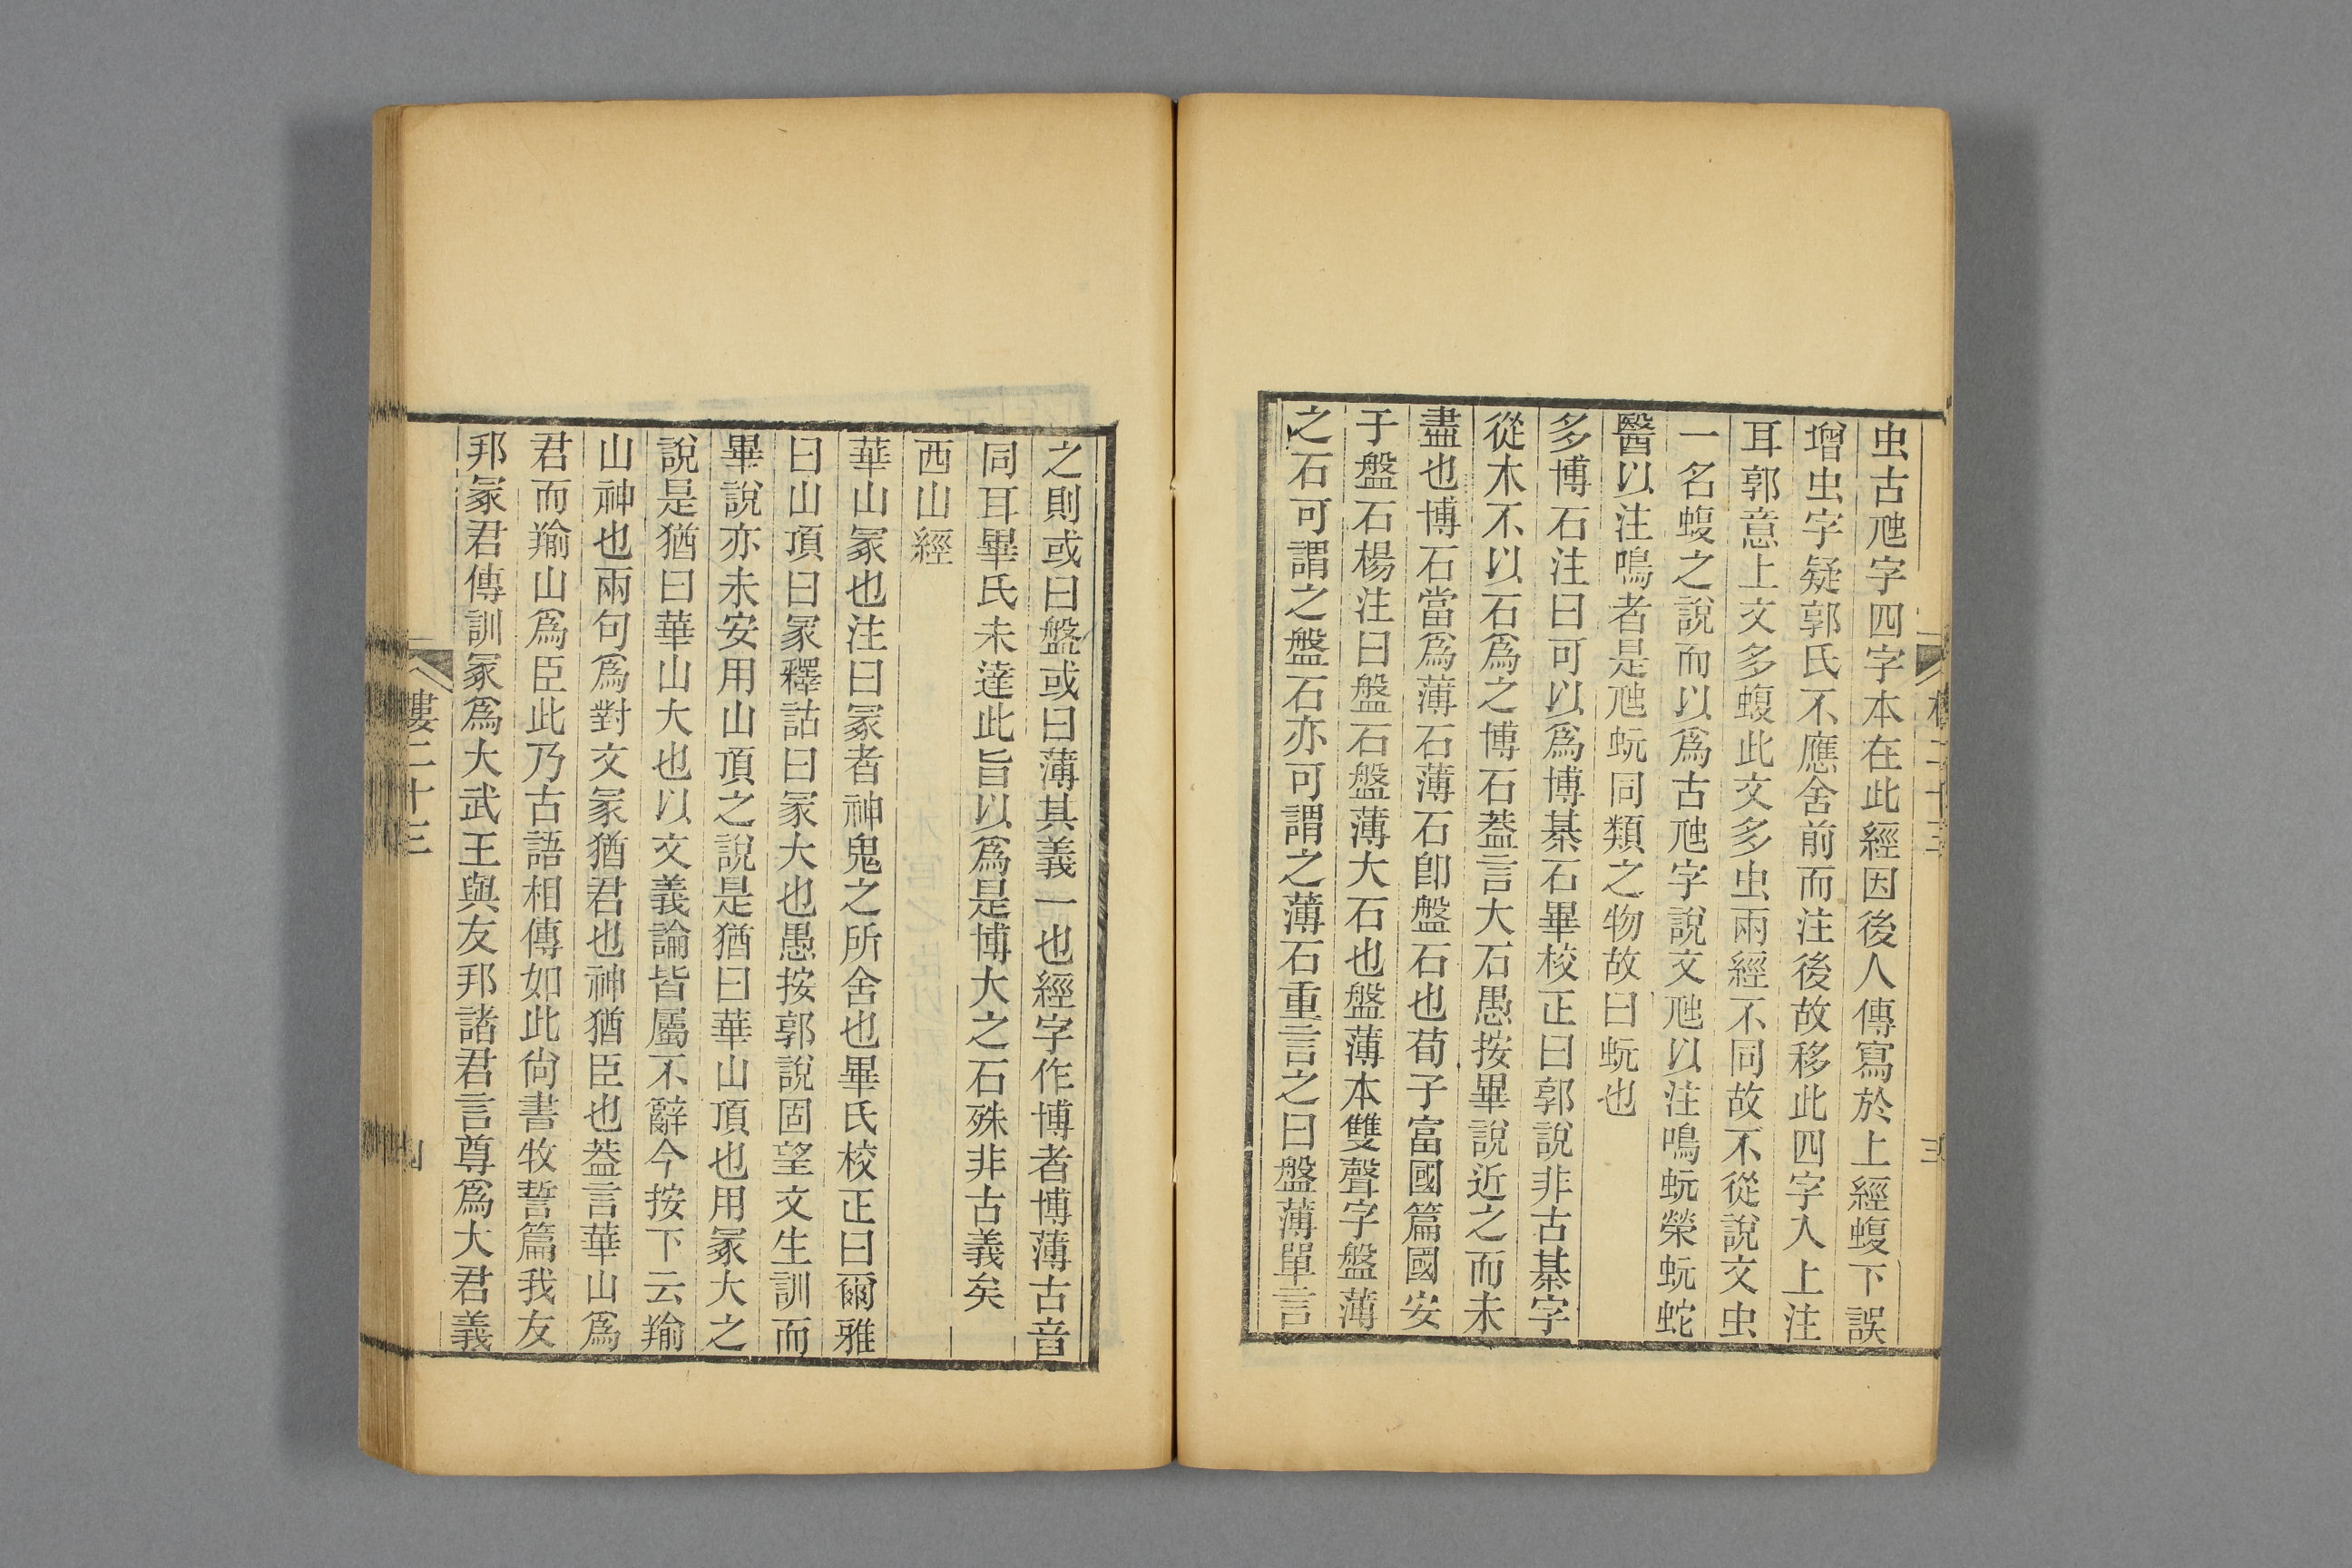 虫古虺字四字本在此經因後人傳寫於上經蝮下誤
增虫字疑郭氏不應舍前而注後故移此四字入上注
耳郭意上文多蝮此文多虫兩經不同故不從說文虫
一名蝮之說而以爲古虺字說文虺以注鳴蚖榮蚖蛇
醫以注鳴者是虺蚖同類之物故曰蚖也
多博石注曰可以爲博棊石畢校正曰郭說非古棊字
從木不以石爲之博石葢言大石愚按畢說近之而未
盡也博石當爲薄石薄石卽盤石也荀子富國篇國安
于盤石楊注曰盤石盤薄大石也盤薄本雙聲字盤薄
之石可謂之盤石亦可謂之薄石重言之曰盤薄單言
三
之則或曰盤或曰薄其義一也經字作博者博薄古音
同耳畢氏未達此旨以爲是博大之石殊非古義矣
西山經
華山冢也注曰冢者神鬼之所舍也畢氏校正曰爾雅
曰山頂曰冢釋詁曰冢大也愚按郭說固望文生訓而
畢說亦未安用山頂之說是猶曰華山頂也用冢大之
說是猶曰華山大也以文義論皆屬不辭今按下云羭
山神也兩句爲對文冢猶君也神猶臣也葢言華山爲
君而羭山爲臣此乃古語相傳如此尙書牧誓篇我友
邦冢君傳訓冢爲大武王與友邦諸君言尊爲大君義
二十三